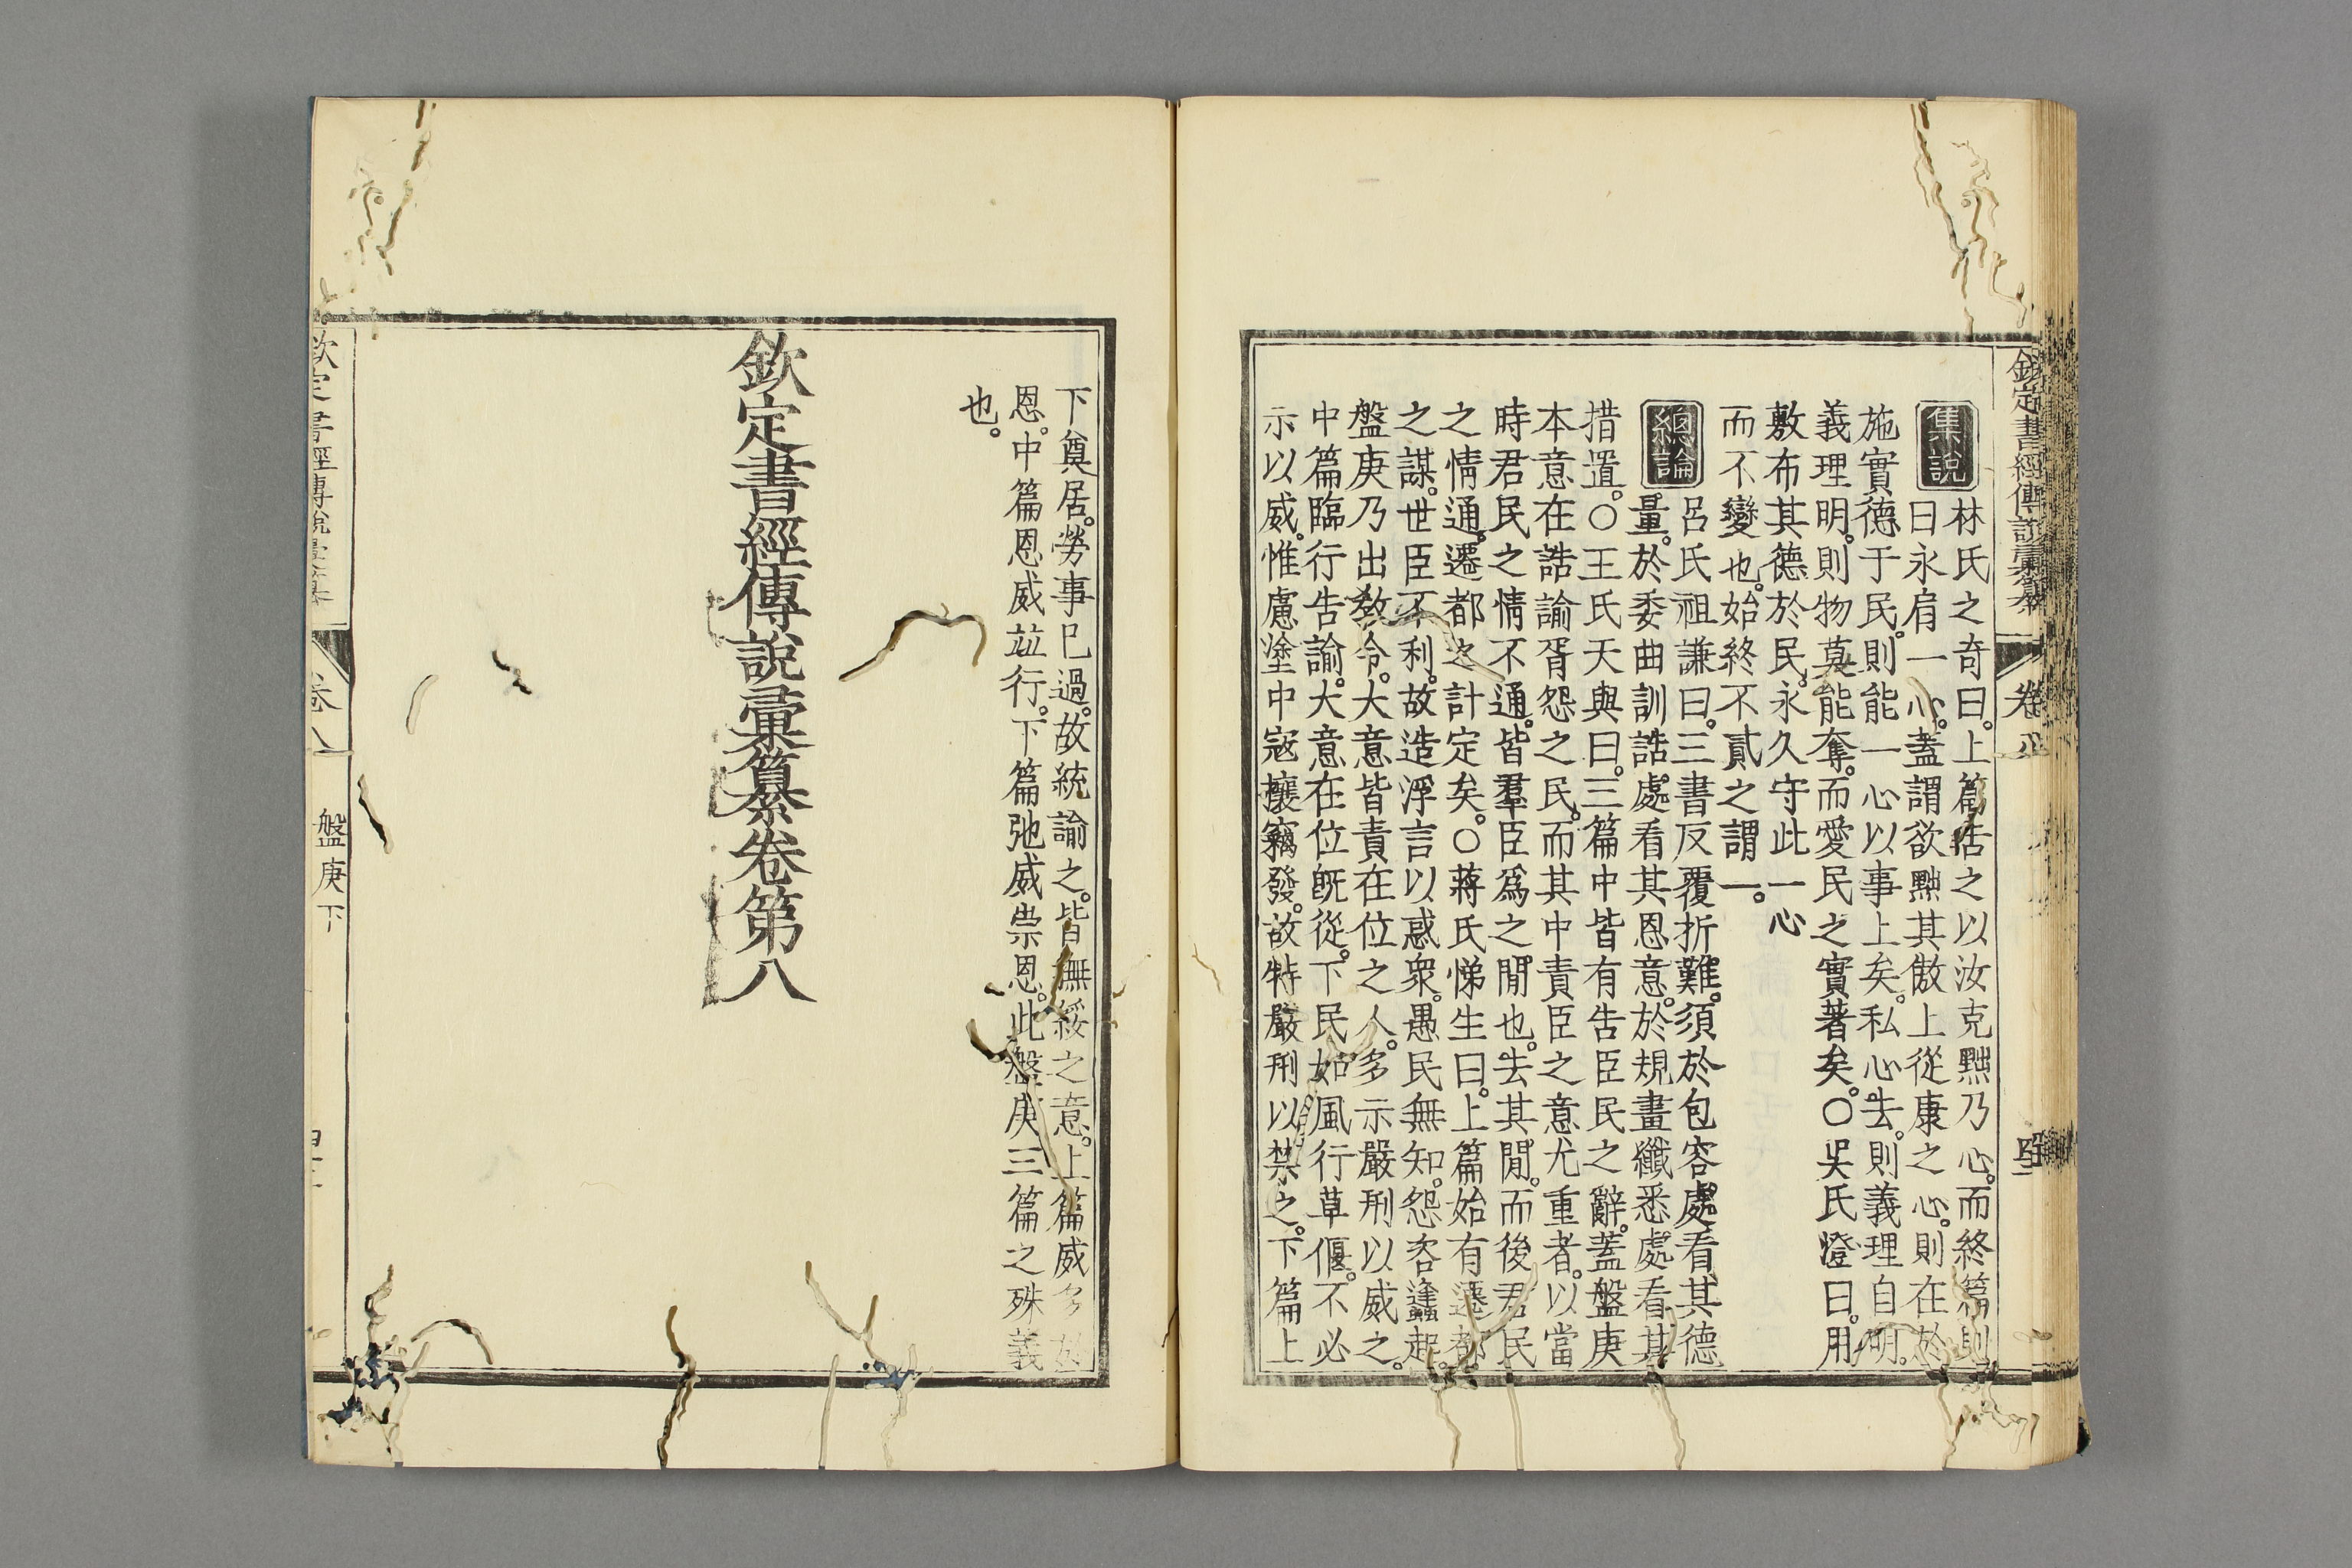 欽定書經傳說彙纂
卷八
集說
林氏之奇曰。上篇告之以汝克黜乃心。而終篇則
曰永肩一心。蓋謂欲黜其傲上從康之心。則在於
施實德于民。則能一心以事上矣。私心去。則義理自明。
義理明。則物莫能奪。而愛民之實著矣。〇吳氏澄曰。用
敷布其德於民。永久守此一心
而不變也。始終不貳之謂一。
總論
呂氏祖謙曰。三書反覆折難。須於包容處看其德
量。於委曲訓誥處看其恩意。於規畫纖悉處看其
措置。〇王氏天與曰。三篇中皆有告臣民之辭。蓋盤庚
本意在誥諭胥怨之民。而其中責臣之意尤重者。以當
時君民之情不通。皆羣臣爲之閒也。去其閒。而後君民
之情通。遷都之計定矣。〇蔣氏悌生曰。上篇始有遷都
之謀。世臣不利。故造浮言以惑衆。愚民無知。怨咨蠭起。
盤庚乃出教令。大意皆責在位之人。多示嚴刑以威之。
中篇臨行告諭。大意在位旣從。下民如風行草偃。不必
示以威。惟慮塗中寇攘竊發。故特嚴刑以禁之。下篇上
下奠居。勞事已過。故統諭之。皆撫綏之意。上篇威多於
恩。中篇恩威竝行。下篇弛威崇恩。此盤庚三篇之殊義
也。
欽定書經傳說彙纂卷第八
欽定書經傳說彙纂
卷八
盤庚下